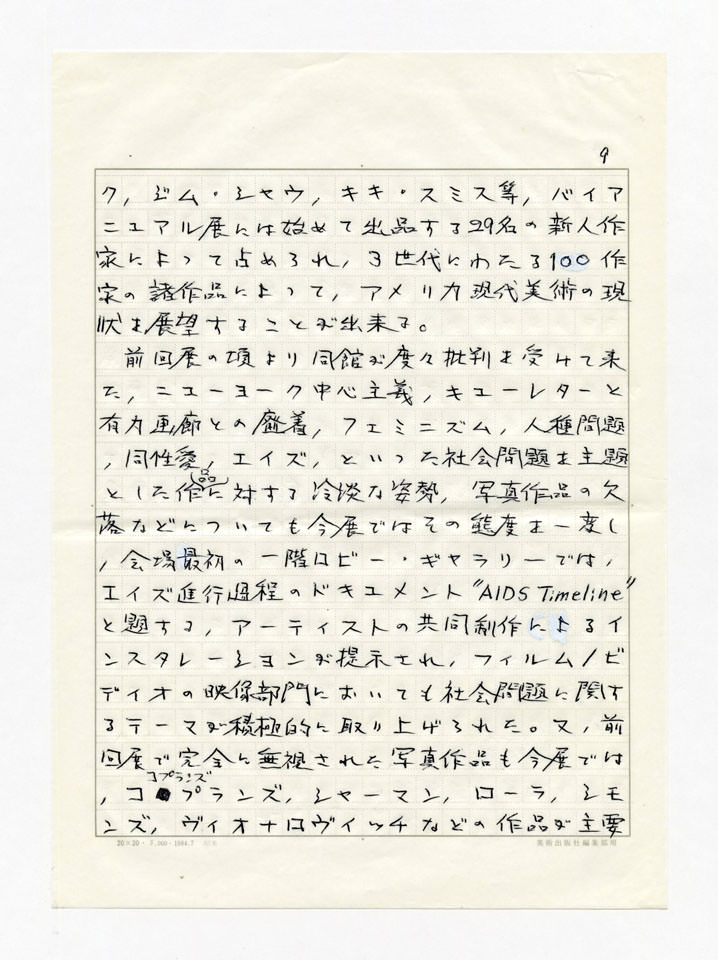 9
ク,ジム・シャウ,キキ・スミス等,バイア
ニュアル展には始めて出品する29名の新人作
家によって占められ,3世代にわたる100作
家の諸作品によって,アメリカ現代美術の現
状を展望することが出来る。
前回展の頃より同館が度々批判を受けて来
た,ニューヨーク中心主義,キューレターと
有力画廊との癒着,フェミニズム,人種問題
,同性愛,エイズ,といった社会問題を主題
とした作品に対する冷淡な姿勢,写真作品の欠
落などについても今展ではその態度を一変し
,会場最初の一階ロビー・ギャラリーでは,
エイズ進行過程のドキュメント"AIDS Timeline"
と題する,アーティストの共同制作によるイ
ンスタレーションが提示され,フィルム/ビ
ディオの映像部門においても社会問題に関す
るテーマが積極的に取り上げられた。又,前
回展で完全に無視された写真作品も今展では
コプランズ
,コプランズ,シャーマン,ローラ,シモ
ンズ,ヴィオナロヴィッチなどの作品が主要
20×20・7,000・1984.7
美術出版社編集部用